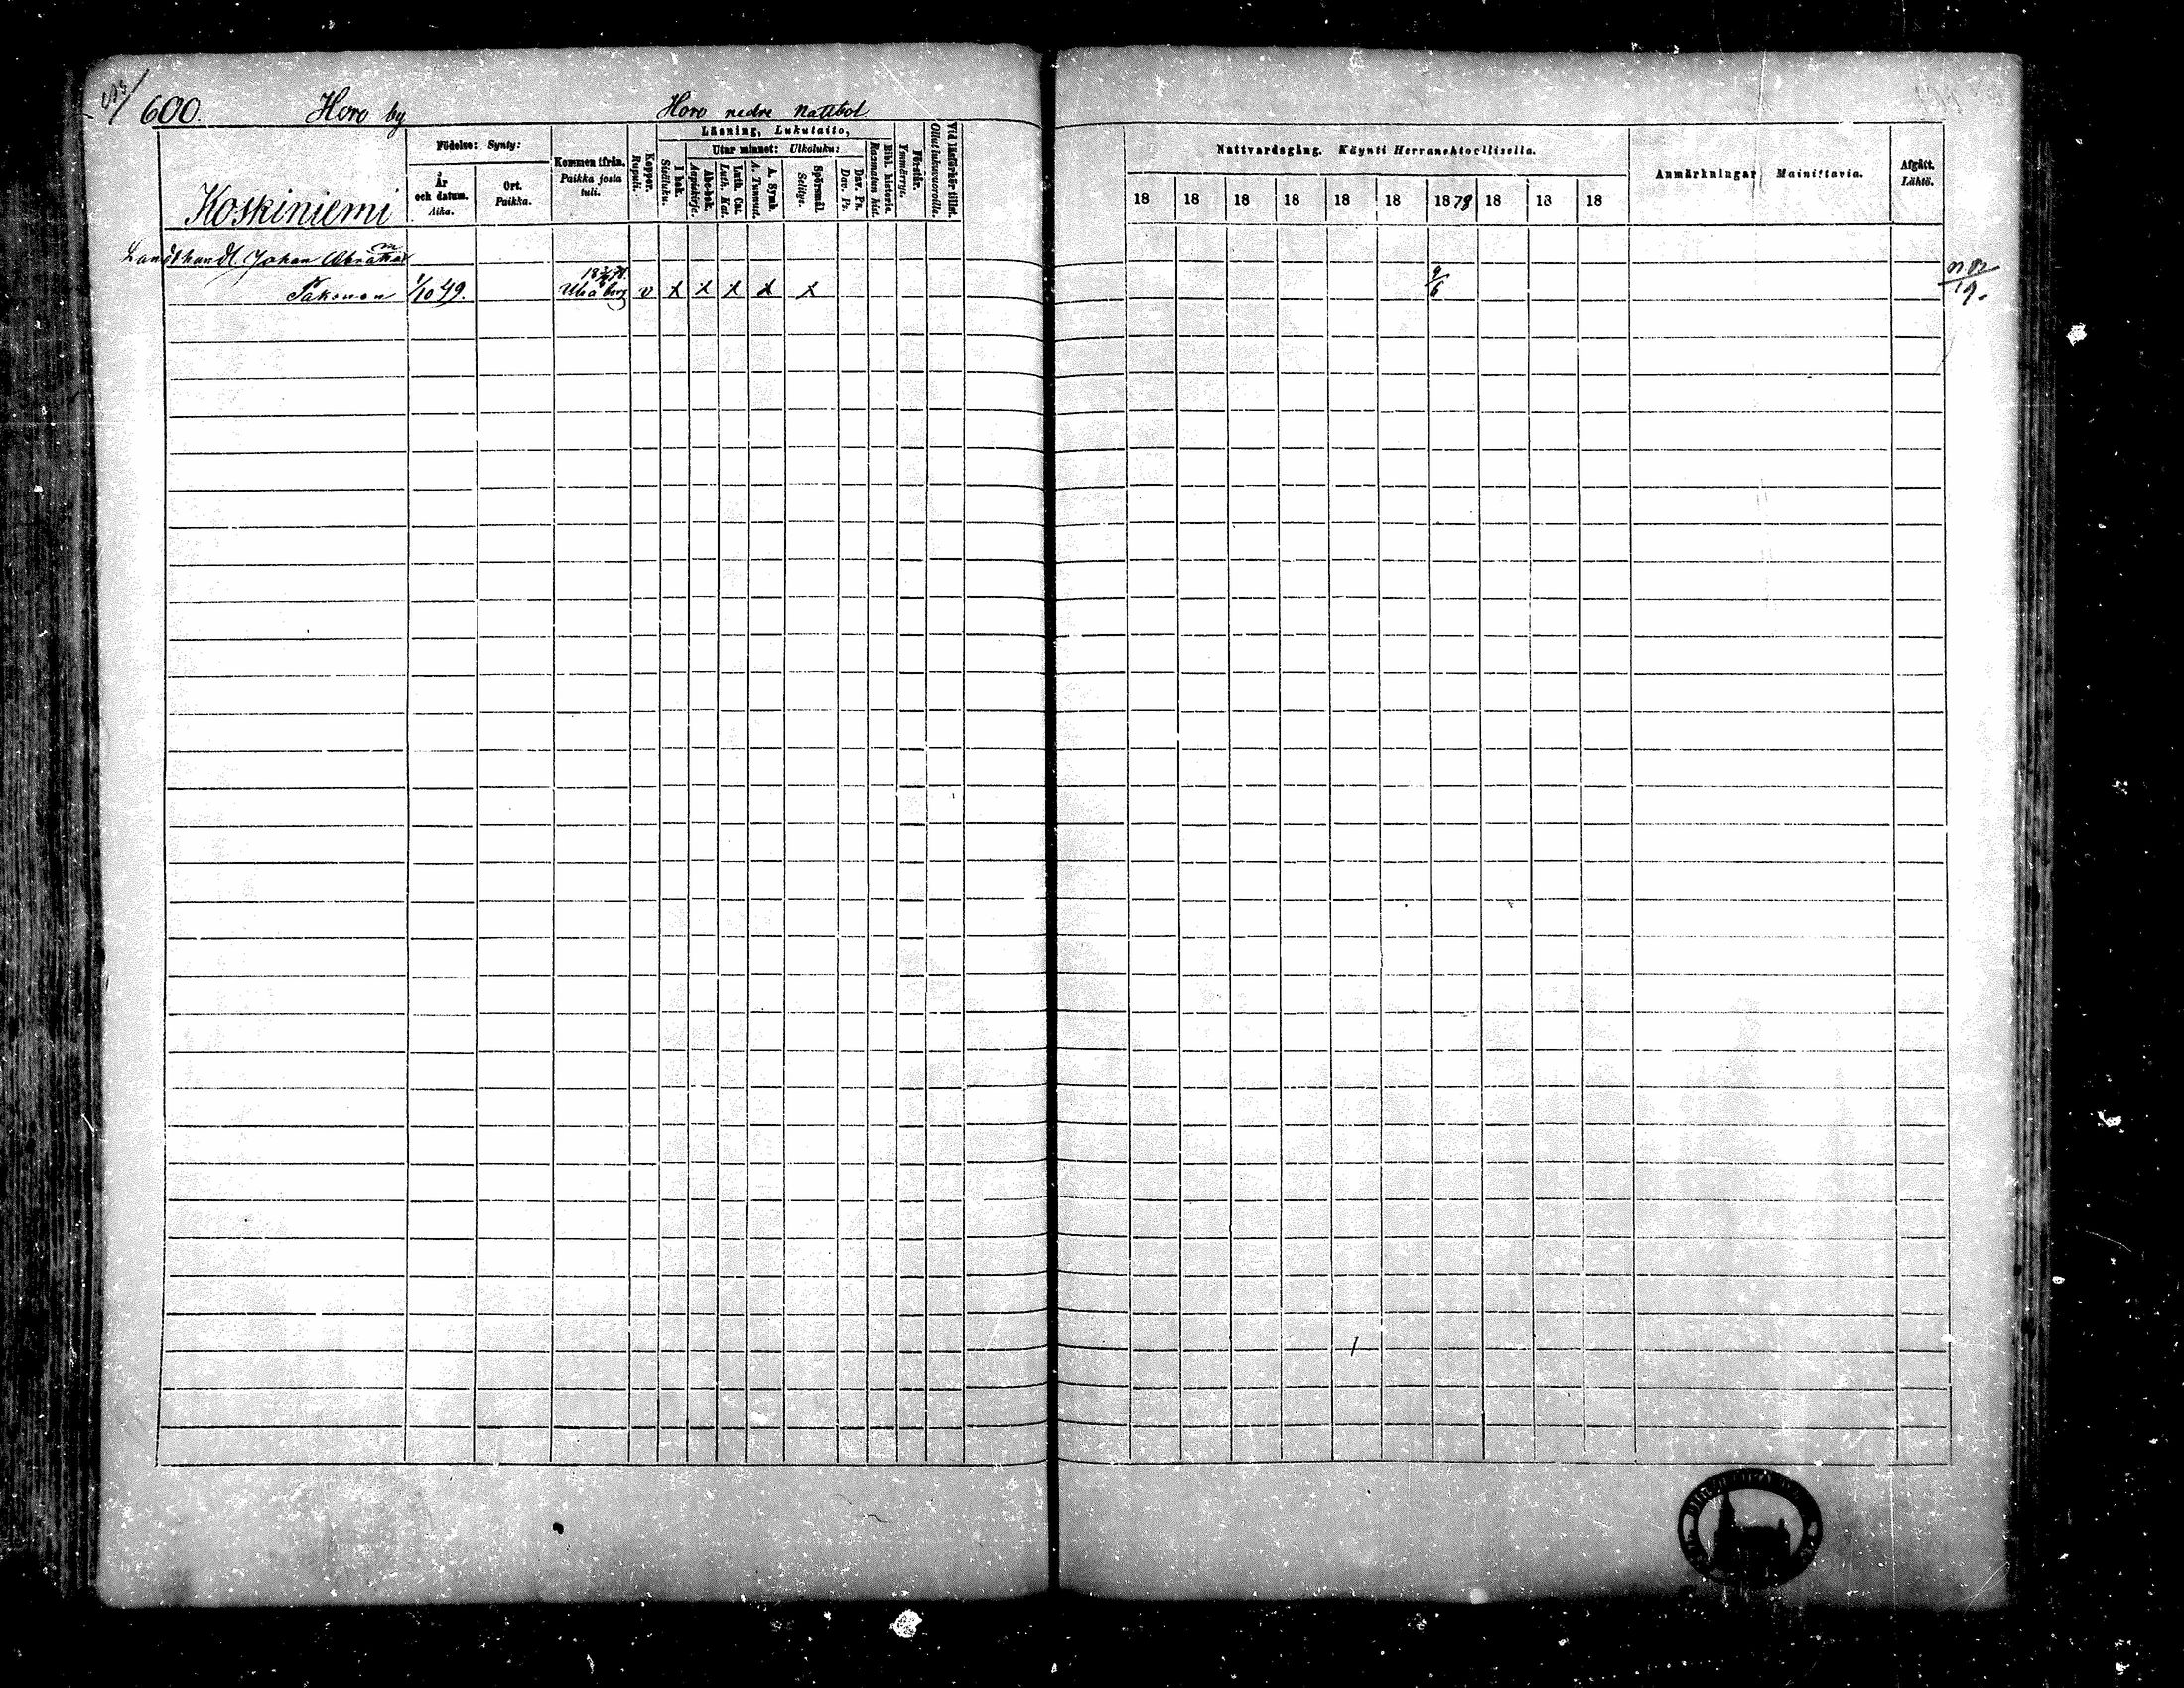 600. Horo by Horo nedre Nattbol
Läsning, Lukutaito,
Födelse: Synty:
Utur minnet: Ulkoluku:
År och datum. Aika.
Ort. Paikka.
Kommen ifrån. Paikka josta tuli.
Koppor. Rupuli.
I bok. Sisäluku.
Abc-bok. Aapiskirja.
Luth. Cat. Luth. Kat.
A. Symb. A. Tunnust.
Spörsmål. Selitys.
Dav. Ps. Dav. Ps.
Bibl. historie. Raamatun hist.
Förstår. Ymmärrys.
Vid läsförhör tillst. Ollut lukuvuorolla.
Koskiniemi
Landthandl. Johan Abraham
Pakonen 1/10 49. Uleåborg v x x x x x
Nattvardsgång. Käynti Herranehtoollisella.
Anmärkningar Mainittavia.
Afgått. Lähtö.
18 18 18 18 18 18 1878 18 18 18
9/6